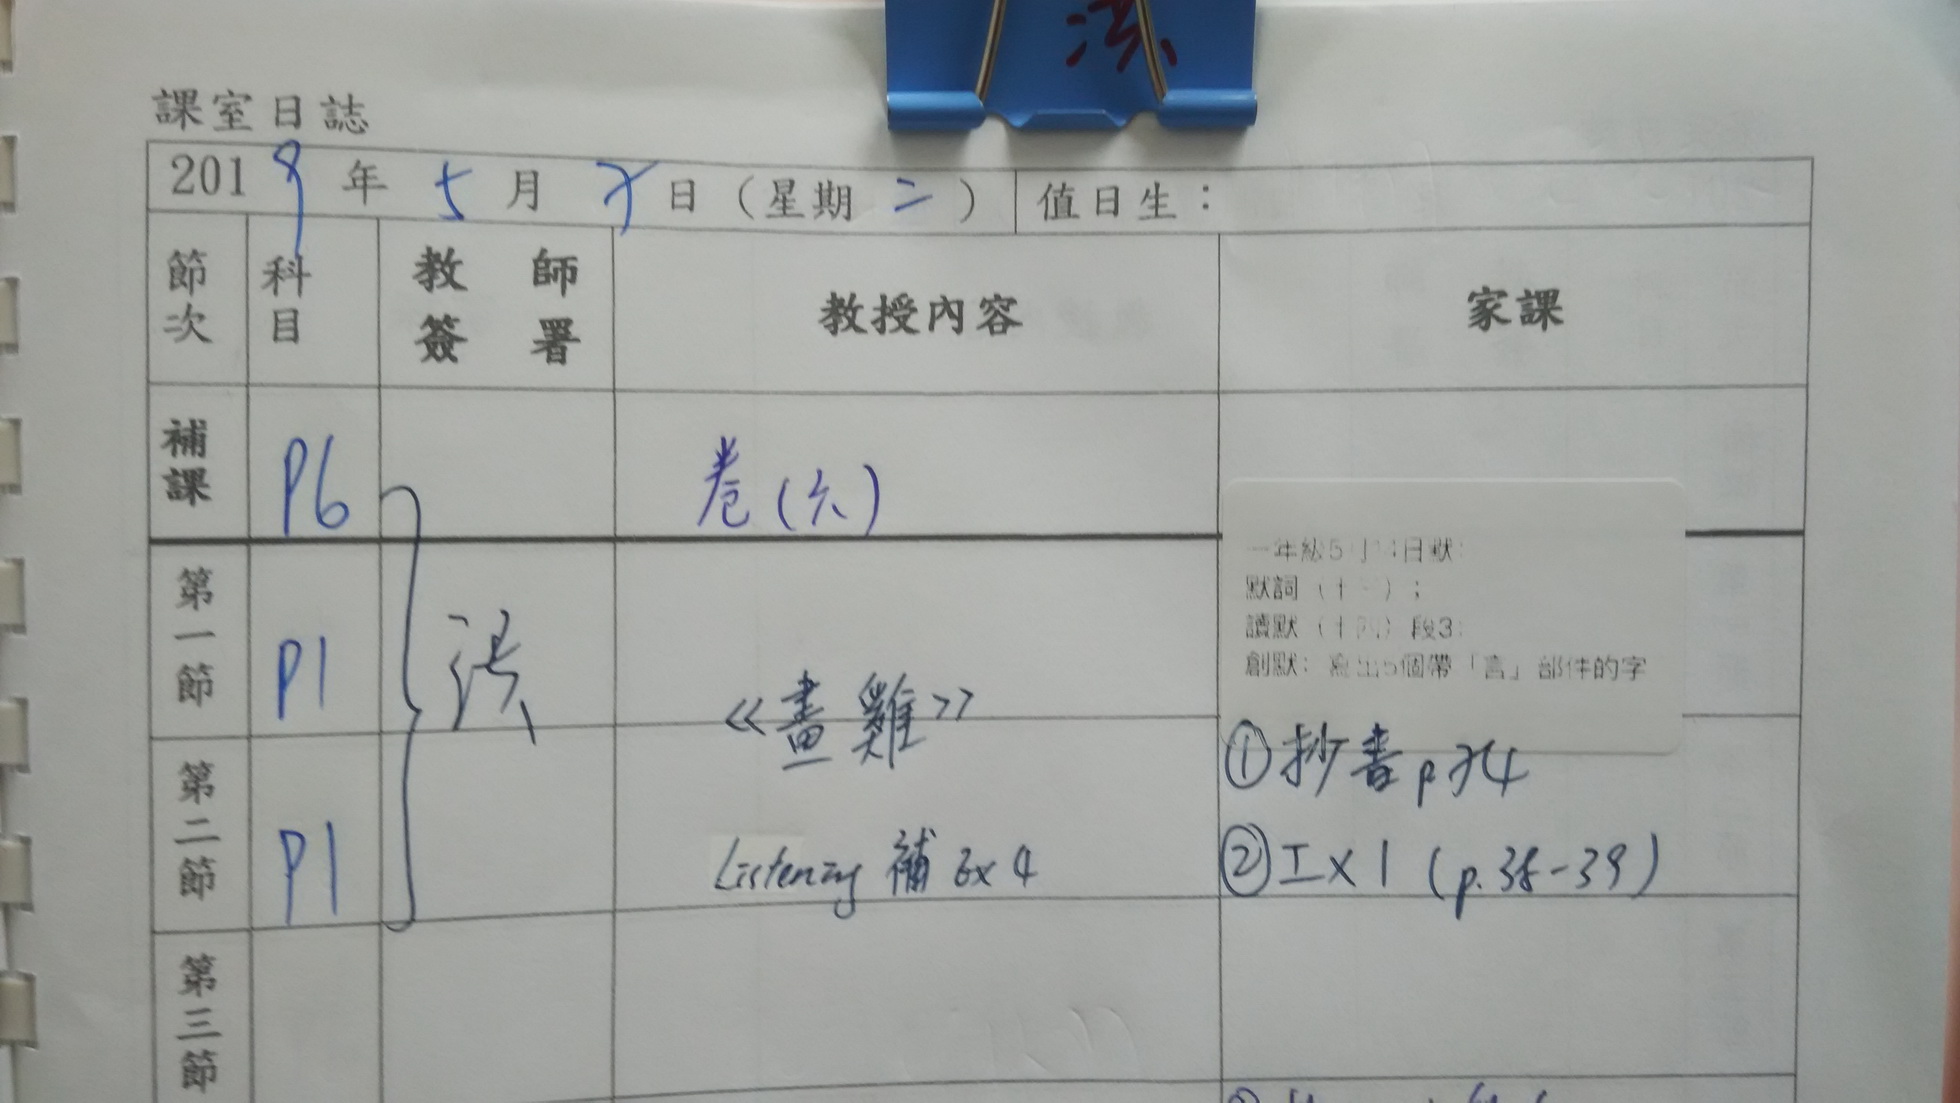 課室日誌
2019年 5月 7日（星期 二） 值日生：
節次 科目 教師簽署 教授內容 家課
補課 P6 卷(六)
一年級5月 日默:
默詞（十 ）；
讀默（十四）段3:
創默: 寫出5個帶「言」部件的字
第一節 P1 《畫雞》
①抄書p74
第二節 P1 Listening 補 Ex 4
②工x1 (p.38-39)
第三節